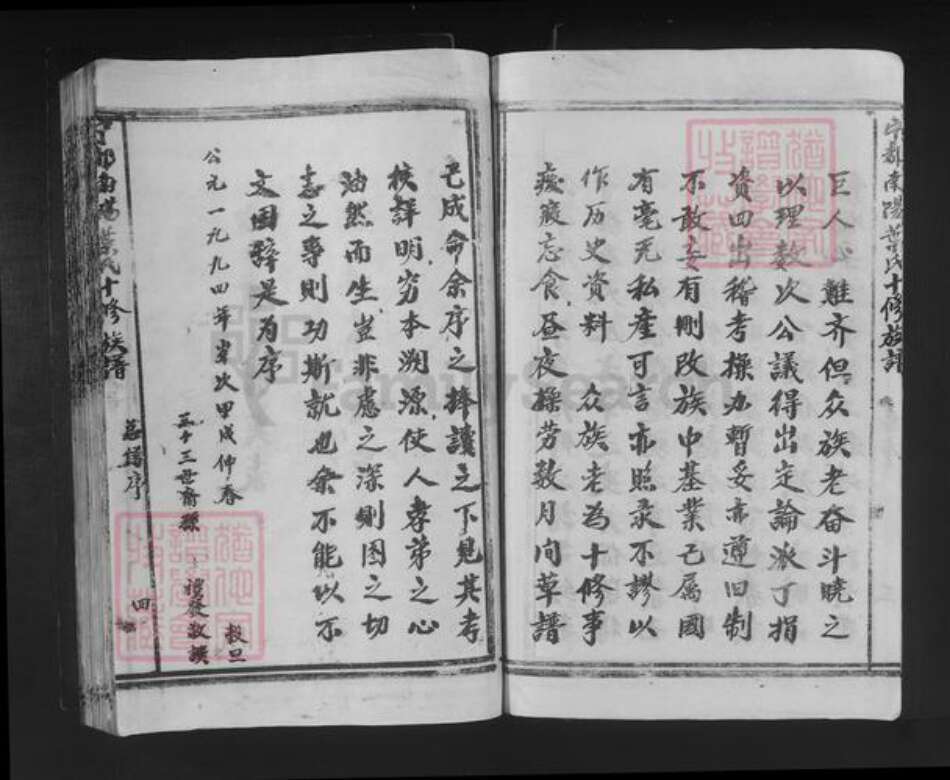 宁都南陽葉氏十修族譜
巨人心難齐但众族老奋斗曉之
以理数次公議得出定論派丁捐
資四出稽考操办暫妥亦遵旧制
不敢妄有刪改族中基業已属國
有毫无私產可言亦照录不謬以
作历史资料 众族老為十修事
廢寢忘食昼夜操劳数月间草譜
已成命余序之捧讀之下見其考
核詳明穷本溯源使人孝弟之心
油然而生豈非慮之深則图之切
志之專則功斯就也余不能以不
文固辞是为序
公元一九九四年岁次甲戌仲春
三十三世裔孫
敬撰
南陽葉氏十修族譜
譜序
四
FamilySearch